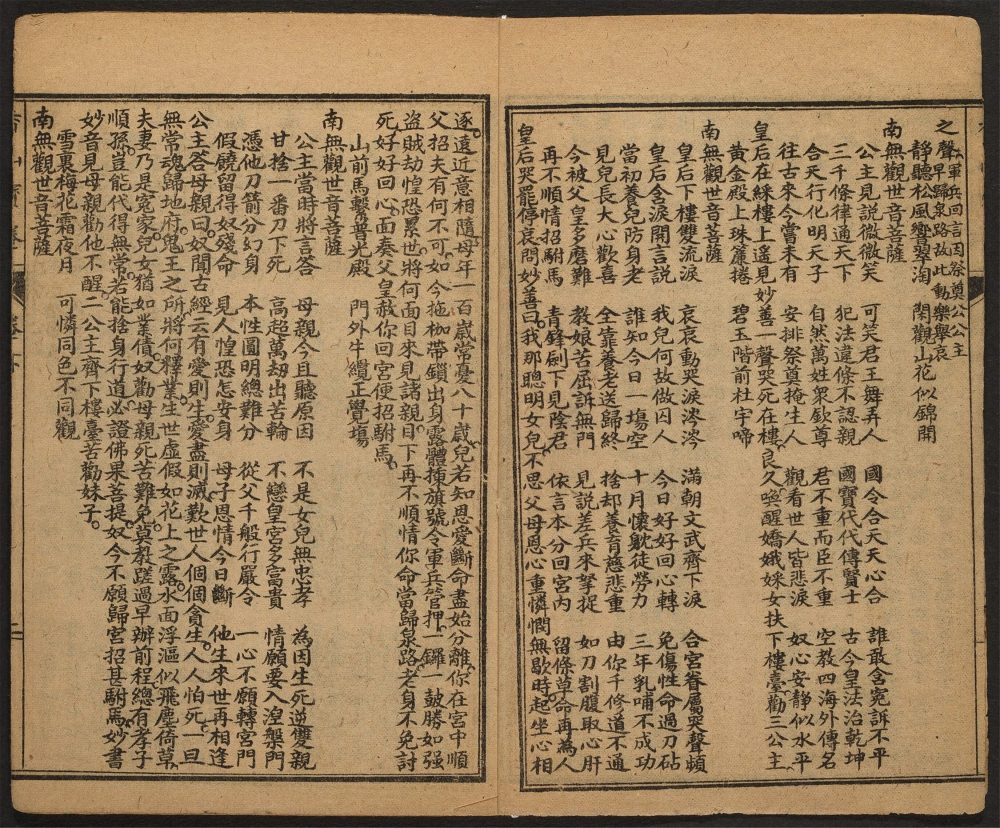 之聲軍兵回言因祭奠公公主早歸泉路故此動樂舉哀
靜聽松風響翠淘 閑觀山花似錦開
南無觀世音菩薩
公主見説微微笑 可笑君王舞弄人 國令合天天心合 誰敢含寃訴不平
三千條律通天下 犯法違條不認親 國寶代代傳賢士 古今皇法治乾坤
合天行化明天子 自然萬姓衆欽尊 君不重而臣不重 空教四海外傳名
往古來今嘗未有 安排祭奠掩生人 觀看世人皆悲淚 奴心安靜似水平
皇后在綵樓上遥見妙善一聲哭死在樓良久喚醒嬌娥婇女扶下樓臺勸三公主
黃金殿上珠簾捲 碧玉階前杜宇啼
南無觀世音菩薩
皇后下樓雙流淚 哀哀動哭淚涔涔 滿朝文武齊下淚 合宮眷屬哭聲頻
皇后含淚開言説 我兒何故做囚人 今日好好回心轉 免傷性命過刀砧
當初養兒防身老 誰知今日一塲空 十月懷躭徒勞力 三年乳哺不成功
見兒長大心歡喜 全靠養老送歸終 捨却養育慈悲重 由你千修道不通
今被父皇多磨難 教娘苦屈訴無門 見説差兵來拏捉 如刀割腹取心肝
再不順情招駙馬 青鋒劍下見陰君 依言本分回宮內 留條草命再為人
皇后哭罷停哀問妙善曰我那聰明女兒不思父母恩心重憐憫無歇時起坐心相
逐遠近意相隨母年一百歲常憂八十歲兒若知恩愛斷命盡始分離你在宮中順
父招夫有何不可如今拖枷帶鎖出身露體揀旗號令軍兵管押一鑼一鼓勝如强
盜賊劫惶恐累世將何面目來見諸親目下再不順情你命當歸泉路老身不免討
死好好回心面奏父皇赦你回宮便招駙馬
山前馬繫普光殿 門外牛纜正覺塲
南無觀世音菩薩
公主當時將言答 母親今且聽原因 不是女兒無忠孝 為因生死逆雙親
甘捨一番刀下死 高超萬劫出苦輪 不戀皇宮多富貴 情願要入湼槃門
憑他刀箭分幻身 本性圓明總難分 從父千般行嚴令 一心不願轉宮門
假饒留得奴殘命 見人惶恐怎安身 母子恩情今日斷 他生來世再相逢
公主答母親曰奴聞古經云有愛則生愛盡則滅歎世人個個貪生人人怕死一旦
無常魂歸地府鬼王之所將何釋業生世虚假如花上之露水面浮漚似飛塵倚草
夫妻乃是寃家兒女猶如業債奴勸母親死苦難免莫教蹉過早辦前程總有孝子
順孫豈能代得無常若能捨身行道必證佛果菩提奴今不願歸宮招甚駙馬妙書
妙音見母親勸他不醒二公主齊下樓臺苦勸妹子
雪裏梅花霜夜月 可憐同色不同觀
南無觀世音菩薩